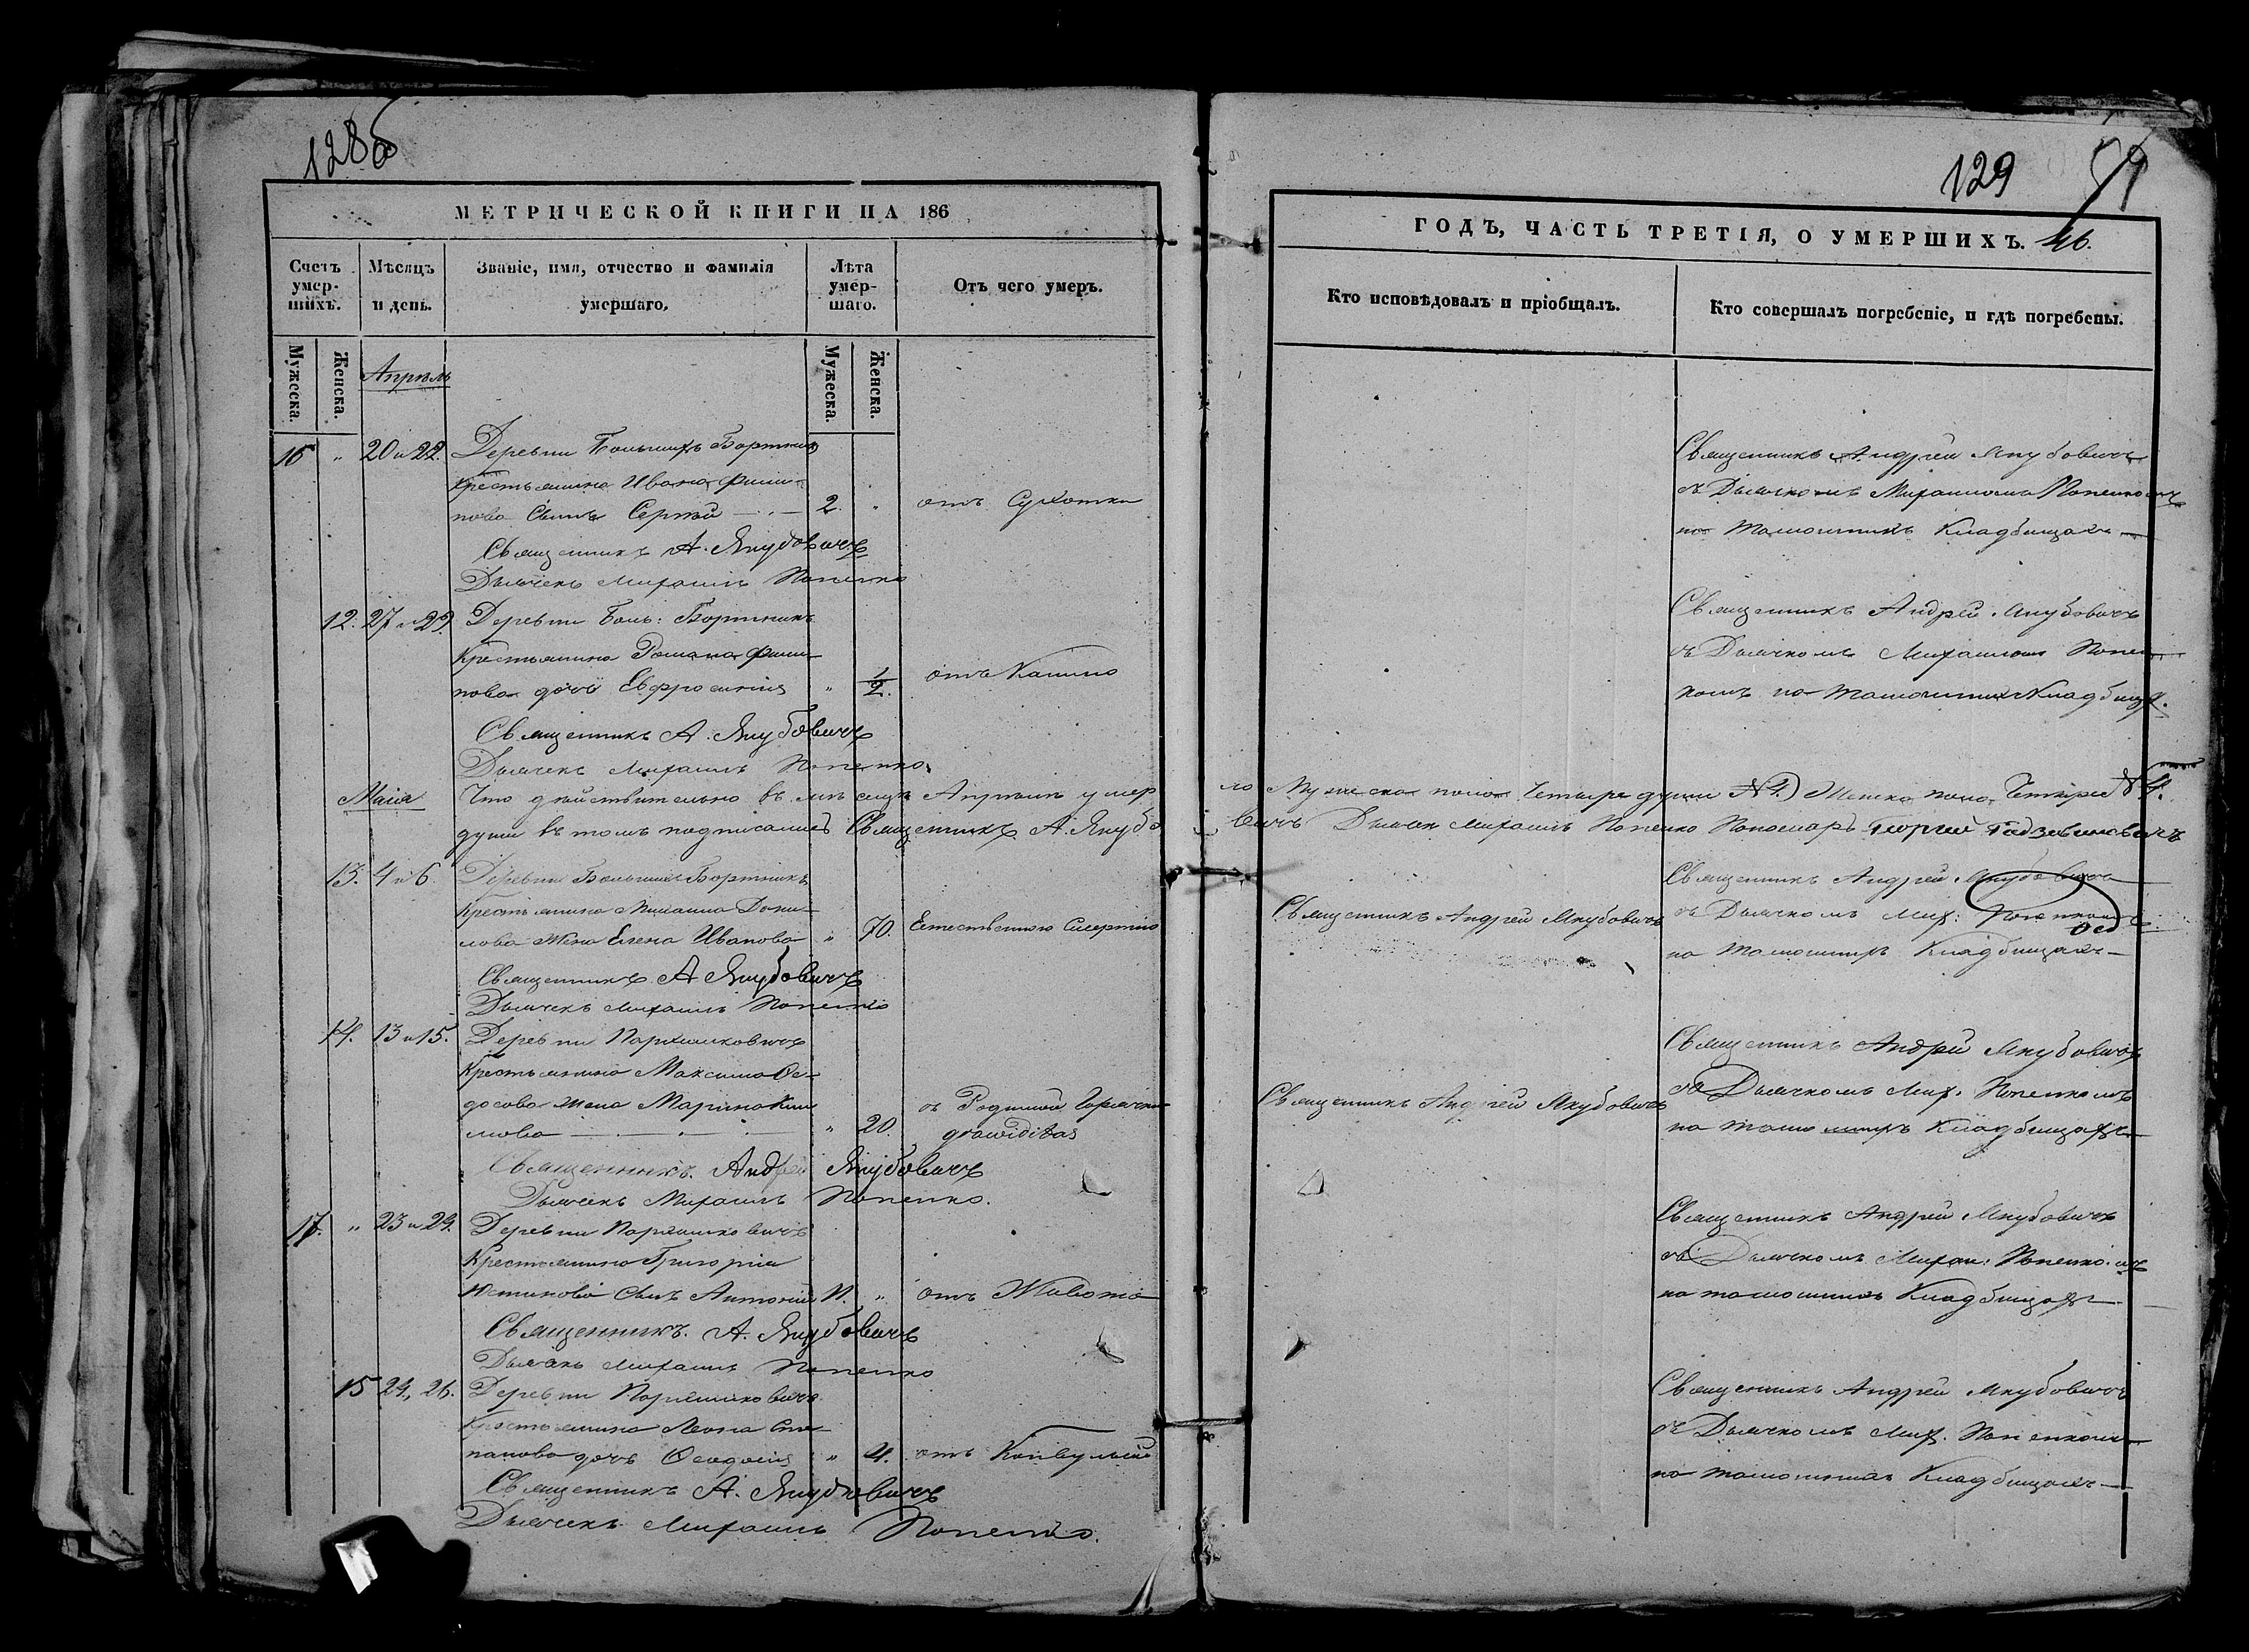 128б
МЕТРИЧЕСКОЙ КНИГИ НА 186
Счетъ умер-шихъ.
Мѣсяцъ и день.
Званіе, имя, отчество и фамилія умершаго.
Лѣта умер-шаго.
Отъ чего умеръ.
Мужеска.
Женска.
Апрѣль
Мужеска.
Женска.
16 " 20 и 22. Деревни Большихъ Бортникъ
Крестьянина Ивана Фили-
пова Сынъ Сергѣй 2. " отъ Сухотки
Священникъ А. Якубовичъ
Дьячекъ Михаилъ Попенко
12. 27 и 29. Деревни Боль: Бортникъ
Крестьянина Романа Фили-
пова дочь Евфросинія " 1/2. отъ Кашлю
Священникъ А. Якубовичъ
Дьячекъ Михаилъ Попенко
Маія
Что дѣйствительно въ мѣсяцѣ Апрѣлѣ умер
души въ томъ подписались Священникъ А. Якубо
13. 4 и 6. Деревни Большихъ Бортникъ
Крестьянина Михаила Дани-
лова Жена Елена Иванова " 70. Естественною Смертію
Священникъ А Якубовичъ
Дьячекъ Михаилъ Попенко
14. 13 и 15. Деревни Пархимковичъ
Крестьянина Максима Ѳе-
досова жена Марина Кли
мова " 20. съ Родимой Горячки
grawiditas
Священникъ. Андрей Якубовичъ
Дьячекъ Михаилъ Попенко.
17. " 23 и 29. Деревни Пархимковичъ
Крестьянина Григорія
Устинова Сынъ Антоній " отъ Живота
Священникъ. А. Якубовичъ
Дьячекъ Михаилъ Попенко
15 24, 26. Деревни Пархимковичъ
Крестьянина Леона Сте-
панова дочь Ѳеодосія " 4. отъ Конвульсій
Священникъ А. Якубовичъ
Дьячекъ Михаилъ Попенко.
129
ГОДЪ, ЧАСТЬ ТРЕТІЯ, О УМЕРШИХЪ. 46.
Кто исповѣдовалъ и пріобщалъ.
Кто совершалъ погребеніе, и гдѣ погребены.
Священникъ Андрей Якубовичъ
съ Дьячкомъ Михаиломъ Попенкомъ
на тамошнихъ Кладбищахъ
Священникъ Андрей Якубовичъ
съ Дьячкомъ Михаиломъ Попен-
комъ на тамошнихъ Кладбищ.
ло Мужеска пола Четыре души №4.) Женска пола Четыре № 4.
вичъ Дьячек Михаилъ Попенко Пономарь Георгий
Священникъ Андрей Якубовичъ
Священникъ Андрей Якубовичъ
съ Дьячкомъ Мих: Попенкомъ
на тамошнихъ Кладбищахъ
Священникъ Андрей Якубовичъ
Священникъ Андрей Якубовичъ
съ Дьячкомъ Мих. Попенкомъ
на тамошнихъ Кладбищахъ
Священникъ Андрей Якубовичъ
съ Дьячкомъ Михаи: Попенкомъ
на тамошнихъ Кладбищахъ
Священникъ Андрей Якубовичъ
съ Дьячкомъ Мих. Попенкомъ
на тамошнихъ Кладбищахъ